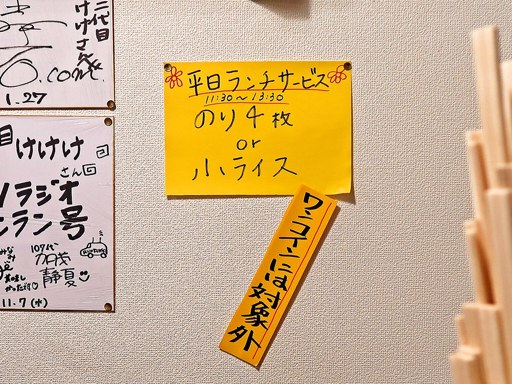 二代目
けけさん江
.com.
1.27
けけけ
さん江
ラジオ
ラン号
107代
加茂
静夏
11.7(水)
平日ランチサービス
11:30～13:30
のり4枚
or
小ライス
ワンコインには対象外